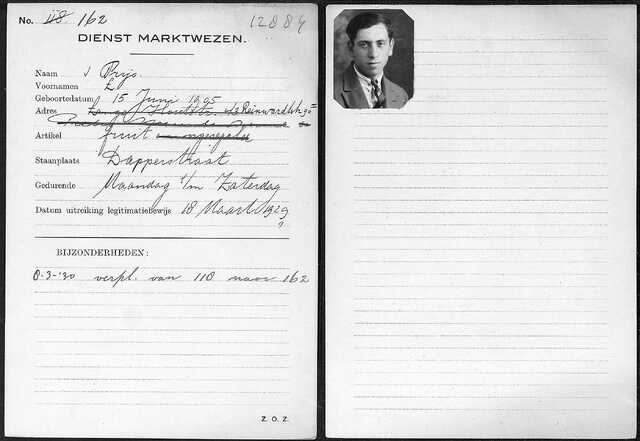 No. 118 162 12884
DIENST MARKTWEZEN.
Naam Prijs.
Voornamen
Geboortedatum 15 Juni 1905
Adres
Artikel fruit
Staanplaats Dapperstraat
Gedurende Maandag t/m Zaterdag
Datum uitreiking legitimatiebewijs 18 Maart 1929
BIJZONDERHEDEN:
8-3-'30 verpl. van 118 naar 162
Z. O. Z.